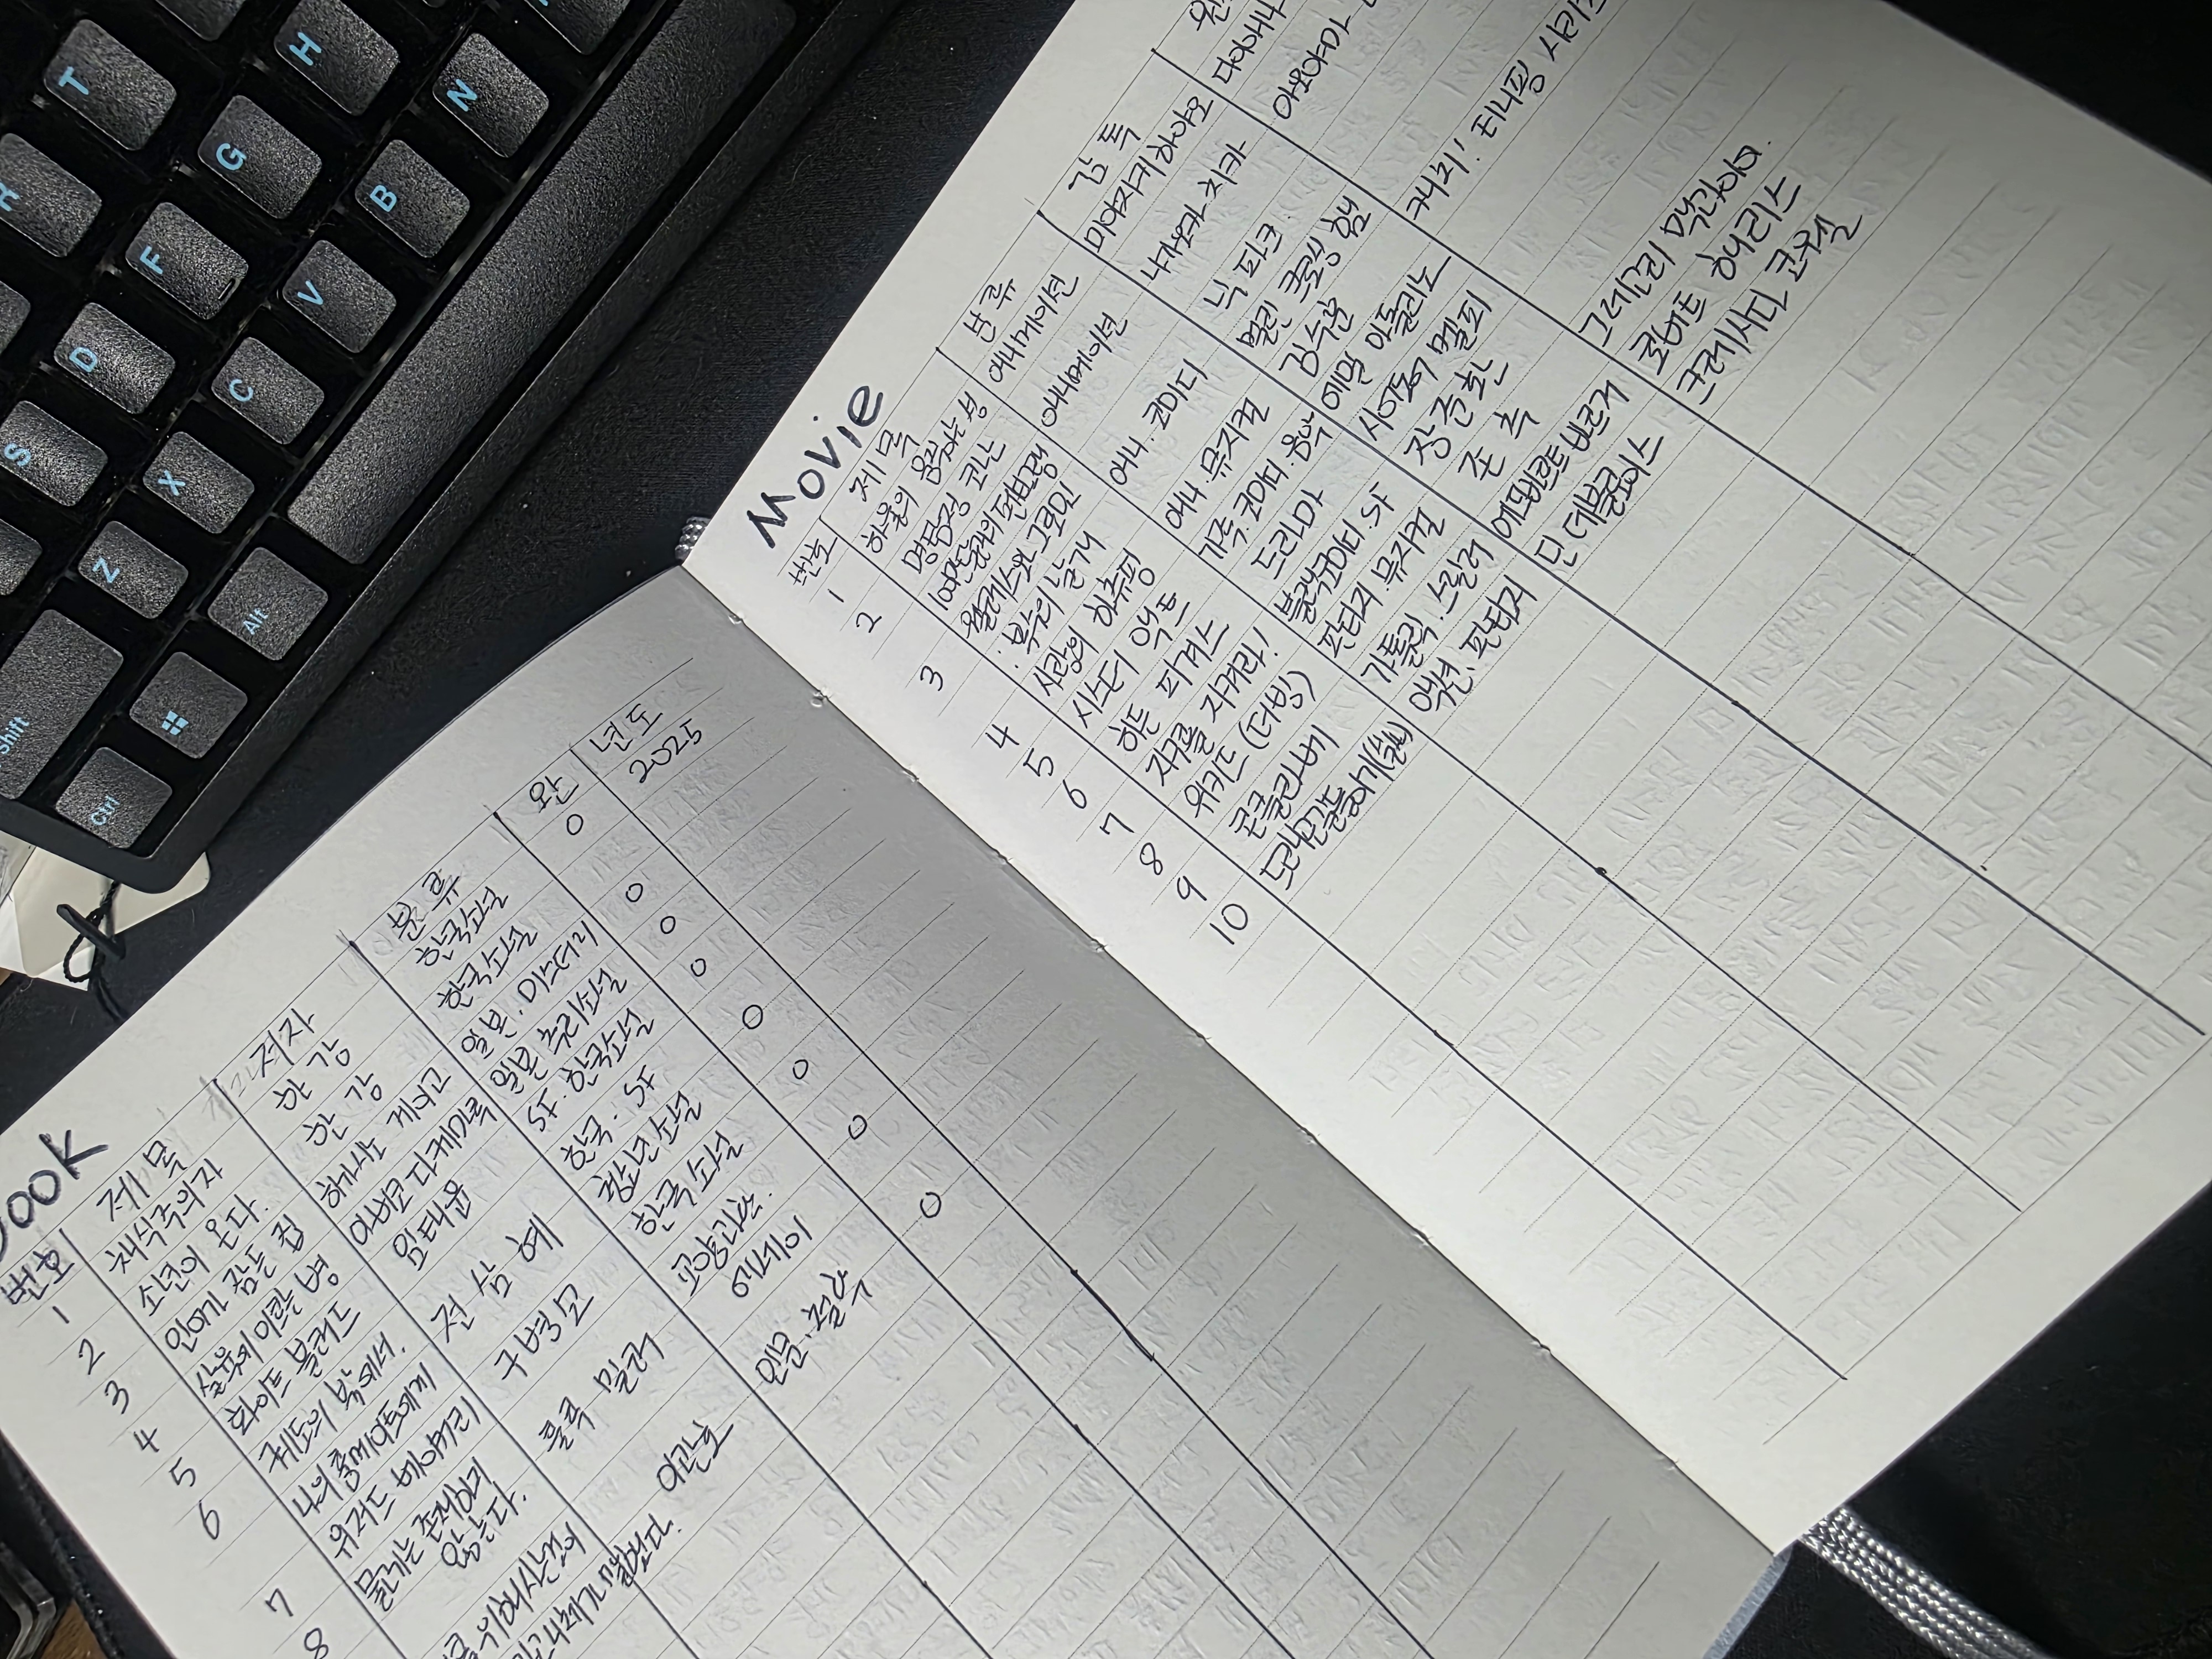 Book
번호 제목 저자 분류 완 년도
1 채식주의자 한 강 한국소설 O 2025
2 소년이 온다. 한 강 한국소설 O
3 인어가 잠든 집 히가시노 게이고 일본.미스터리 O
4 살육에 이르는 병 아비코 다케마루 일본 추리소설 O
5 화이트 블러드 임태운 SF.한국소설 O
6 궤도의 밖에서, 전 삼 혜 한국.SF O
나의 룸메이트에게 청소년소설
7 위저드 베이커리 구병모 한국소설 O
8 물고기는 존재하지 룰루 밀러 교양과학. O
않는다. 에세이
이관호 인문.철학
Movie
번호 제목 분류 감독
1 하울의 움직이는 성 애니메이션 미야자키 하야오
2 명탐정 코난 애니메이션 나가오카 치카
100만 달러의 펜타그램
3 월레스와 그로밋 애니.코미디 닉 파크
: 복수의 날개 멀린 크로싱햄
4 사랑의 하츄핑 애니.뮤지컬 김수훈 캐치! 티니핑
5 시스터 액트 가족.코미디.음악 에밀 아돌리노
6 히든 피겨스 드라마 시어도어 멜피
7 지구를 지켜라! 블랙코미디.SF 장준환
8 위키드 (더빙) 판타지.뮤지컬 존 추 그레고리 맥과이어.
9 콘클라베 가톨릭.스릴러 에드바르트 베르거 로버트 해리스
10 액션.판타지 딘 데블로이스 크레시다 코웰
T
H
N
G
B
F
V
D
C
S
X
Z
Alt
Shift
Ctrl